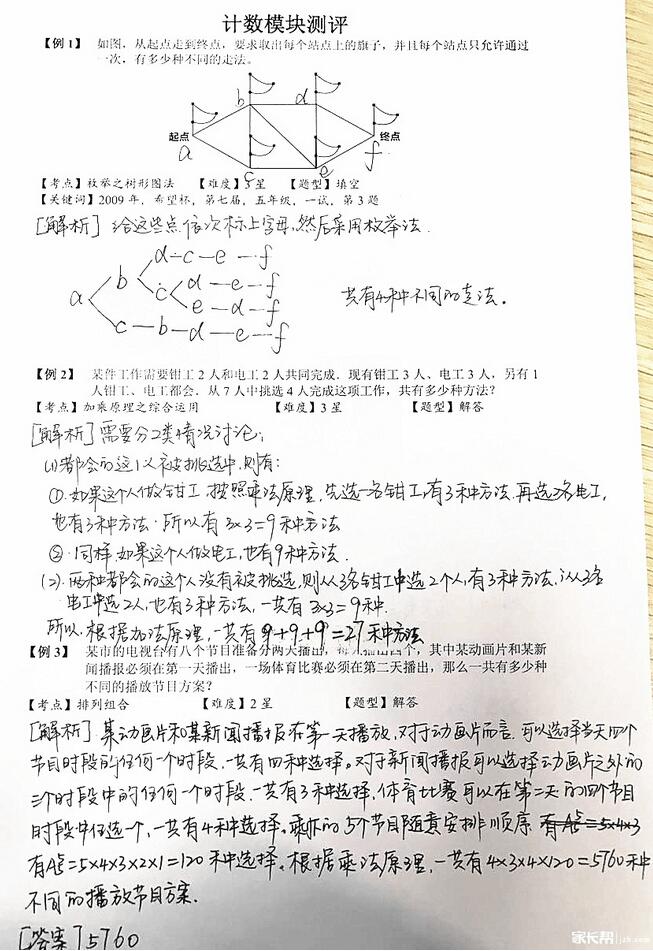 计数模块测评
【例1】 如图，从起点走到终点，要求取出每个站点上的旗子，并且每个站点只允许通过
一次，有多少种不同的走法。
b d
起点 终点
a f
c e
【考点】枚举之树形图法 【难度】3星 【题型】填空
【关键词】2009年，希望杯，第七届，五年级，一试，第3题
[解析] 给这些点依次标上字母，然后采用枚举法．
d－c－e－f
b
c d－e－f
a 共有4种不同的走法。
e－d－f
c－b－d－e－f
【例2】 某件工作需要钳工2人和电工2人共同完成．现有钳工3人、电工3人，另有1
人钳工、电工都会．从7人中挑选4人完成这项工作，共有多少种方法？
【考点】加乘原理之综合运用 【难度】3星 【题型】解答
[解析] 需要分2类情况讨论：
(1)都会的这1人被挑选中，则有：
①．如果这个人做钳工，按照乘法原理，先选一名钳工，有3种方法，再选2名电工，
也有3种方法．所以有3×3=9种方法
②．同样如果这个人做电工，也有9种方法．
(2)．两种都会的这个人没有被挑选，则从3名钳工中选2个人，有3种方法，从3名
电工中选2人，也有3种方法，一共有3×3=9种．
所以，根据加法原理，一共有9+9+9=27种方法
【例3】 某市的电视台有八个节目准备分两天播出，每天播出四个，其中某动画片和某新
闻播报必须在第一天播出，一场体育比赛必须在第二天播出，那么一共有多少种
不同的播放节目方案？
【考点】排列组合 【难度】2星 【题型】解答
[解析] 某动画片和某新闻播报在第一天播放，对于动画片而言，可以选择当天四个
节目时段的任何一个时段，一共有四种选择。对于新闻播报可以选择动画片之外的
三个时段中的任何一个时段，一共有3种选择，体育比赛可以在第二天的四个节目
时段中任选一个，一共有4种选择。剩下的5个节目随意安排顺序
有A⁵₅=5×4×3×2×1=120种选择。根据乘法原理，一共有4×3×4×120=5760种
不同的播放节目方案．
[答案] 5760
家长帮 jzb.com